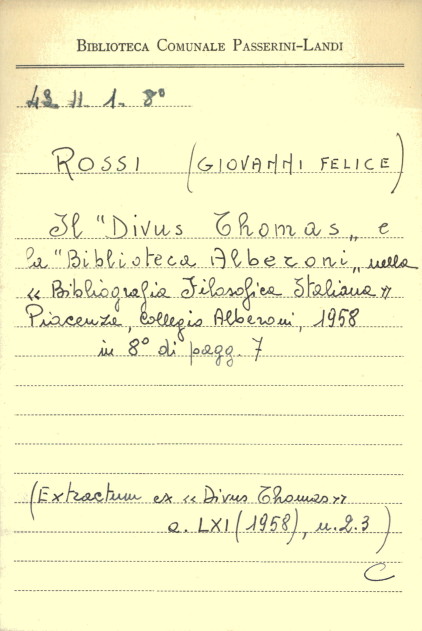 BIBLIOTECA COMUNALE PASSERINI-LANDI
42 H. 1. 8°
ROSSI (GIOVANNI FELICE)
Il "Divus Thomas„ e
la "Biblioteca Alberoni„ nella
« Bibliografia Filosofica Italiana »
Piacenza, Collegio Alberoni, 1958
in 8° di pagg. 7
(Extractum ex « Divus Thomas »
a. LXI (1958), n. 2.3)
C